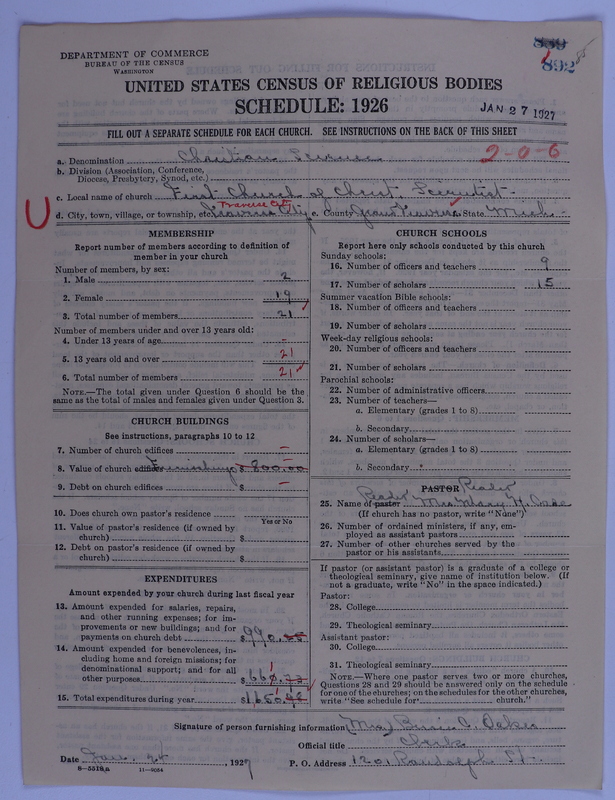 DEPARTMENT OF COMMERCE
BUREAU OF THE CENSUS
WASHINGTON
892
85
UNITED STATES CENSUS OF RELIGIOUS BODIES
SCHEDULE: 1926
JAN 27 1927
FILL OUT A SEPARATE SCHEDULE FOR EACH CHURCH. SEE INSTRUCTIONS ON THE BACK OF THIS SHEET
a. Denomination Christian Science
2-0-6
b. Division (Association, Conference,
Diocese, Presbytery, Synod, etc.)
c. Local name of church First Church of Christ Scientist
Traverse City
d. City, town, village, or township, etc. Traverse City e. County Grand Traverse State Mich.
MEMBERSHIP
Report number of members according to definition of
member in your church
Number of members, by sex:
1. Male 2
2. Female 19
3. Total number of members 21
Number of members under and over 13 years old:
4. Under 13 years of age -
5. 13 years old and over 21
6. Total number of members 21
NOTE.—The total given under Question 6 should be the
same as the total of males and females given under Question 3.
CHURCH BUILDINGS
See instructions, paragraphs 10 to 12
7. Number of church edifices -
8. Value of church edifices Furnishings $ 800.00
9. Debt on church edifices $ -
10. Does church own pastor's residence
Yes or No
11. Value of pastor's residence (if owned by
church) $
12. Debt on pastor's residence (if owned by
church) $
EXPENDITURES
Amount expended by your church during last fiscal year
13. Amount expended for salaries, repairs,
and other running expenses; for im-
provements or new buildings; and for
payments on church debt $ 990.
14. Amount expended for benevolences, in-
cluding home and foreign missions; for
denominational support; and for all
other purposes $
15. Total expenditures during year $
CHURCH SCHOOLS
Report here only schools conducted by this church
Sunday schools:
16. Number of officers and teachers 9
17. Number of scholars 15
Summer vacation Bible schools:
18. Number of officers and teachers
19. Number of scholars
Week-day religious schools:
20. Number of officers and teachers
21. Number of scholars
Parochial schools:
22. Number of administrative officers
23. Number of teachers—
a. Elementary (grades 1 to 8)
b. Secondary
24. Number of scholars—
a. Elementary (grades 1 to 8)
b. Secondary
PASTOR Reader
25. Name of pastor Reader Mrs Mary H.
(If church has no pastor, write "None")
26. Number of ordained ministers, if any, em-
ployed as assistant pastors
27. Number of other churches served by the
pastor or his assistants
If pastor (or assistant pastor) is a graduate of a college or
theological seminary, give name of institution below. (If
not a graduate, write "No" in the space indicated.)
Pastor:
28. College
29. Theological seminary
Assistant pastor:
30. College
31. Theological seminary
NOTE.—Where one pastor serves two or more churches,
Questions 28 and 29 should be answered only on the schedule
for one of the churches; on the schedules for the other churches,
write "See schedule for church."
Signature of person furnishing information Mrs C. Oakes
Official title Clerk
Date Jan. 24, 1927 P. O. Address 1201 Randolph St.
8—5518a 11—9084